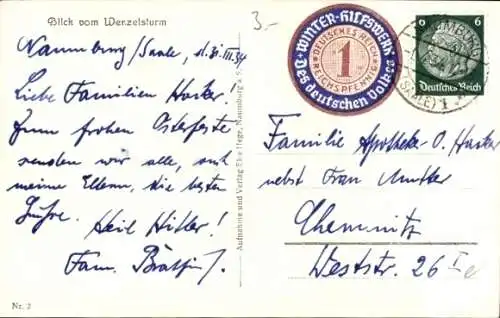 Blick vom Wenzelsturm
3.-
Naumburg/Saale, d. 31.III.34
Liebe Familien Harker!
Zum frohen Osterfeste
senden wir alle, auch
meine Eltern, die besten
Grüße. Heil Hitler!
Fam.
Nr. 2
Aufnahme und Verlag Naumburg a. S.
WINTER-HILFSWERK
Des deutschen Volkes
DEUTSCHES REICH
1
REICHSPFENNIG
6 6
Deutsches Reich
NAUMBURG
(SAALE) 1
Familie Apotheke O. Harker
nebst Frau Mutter
Chemnitz
Weststr. 26 I